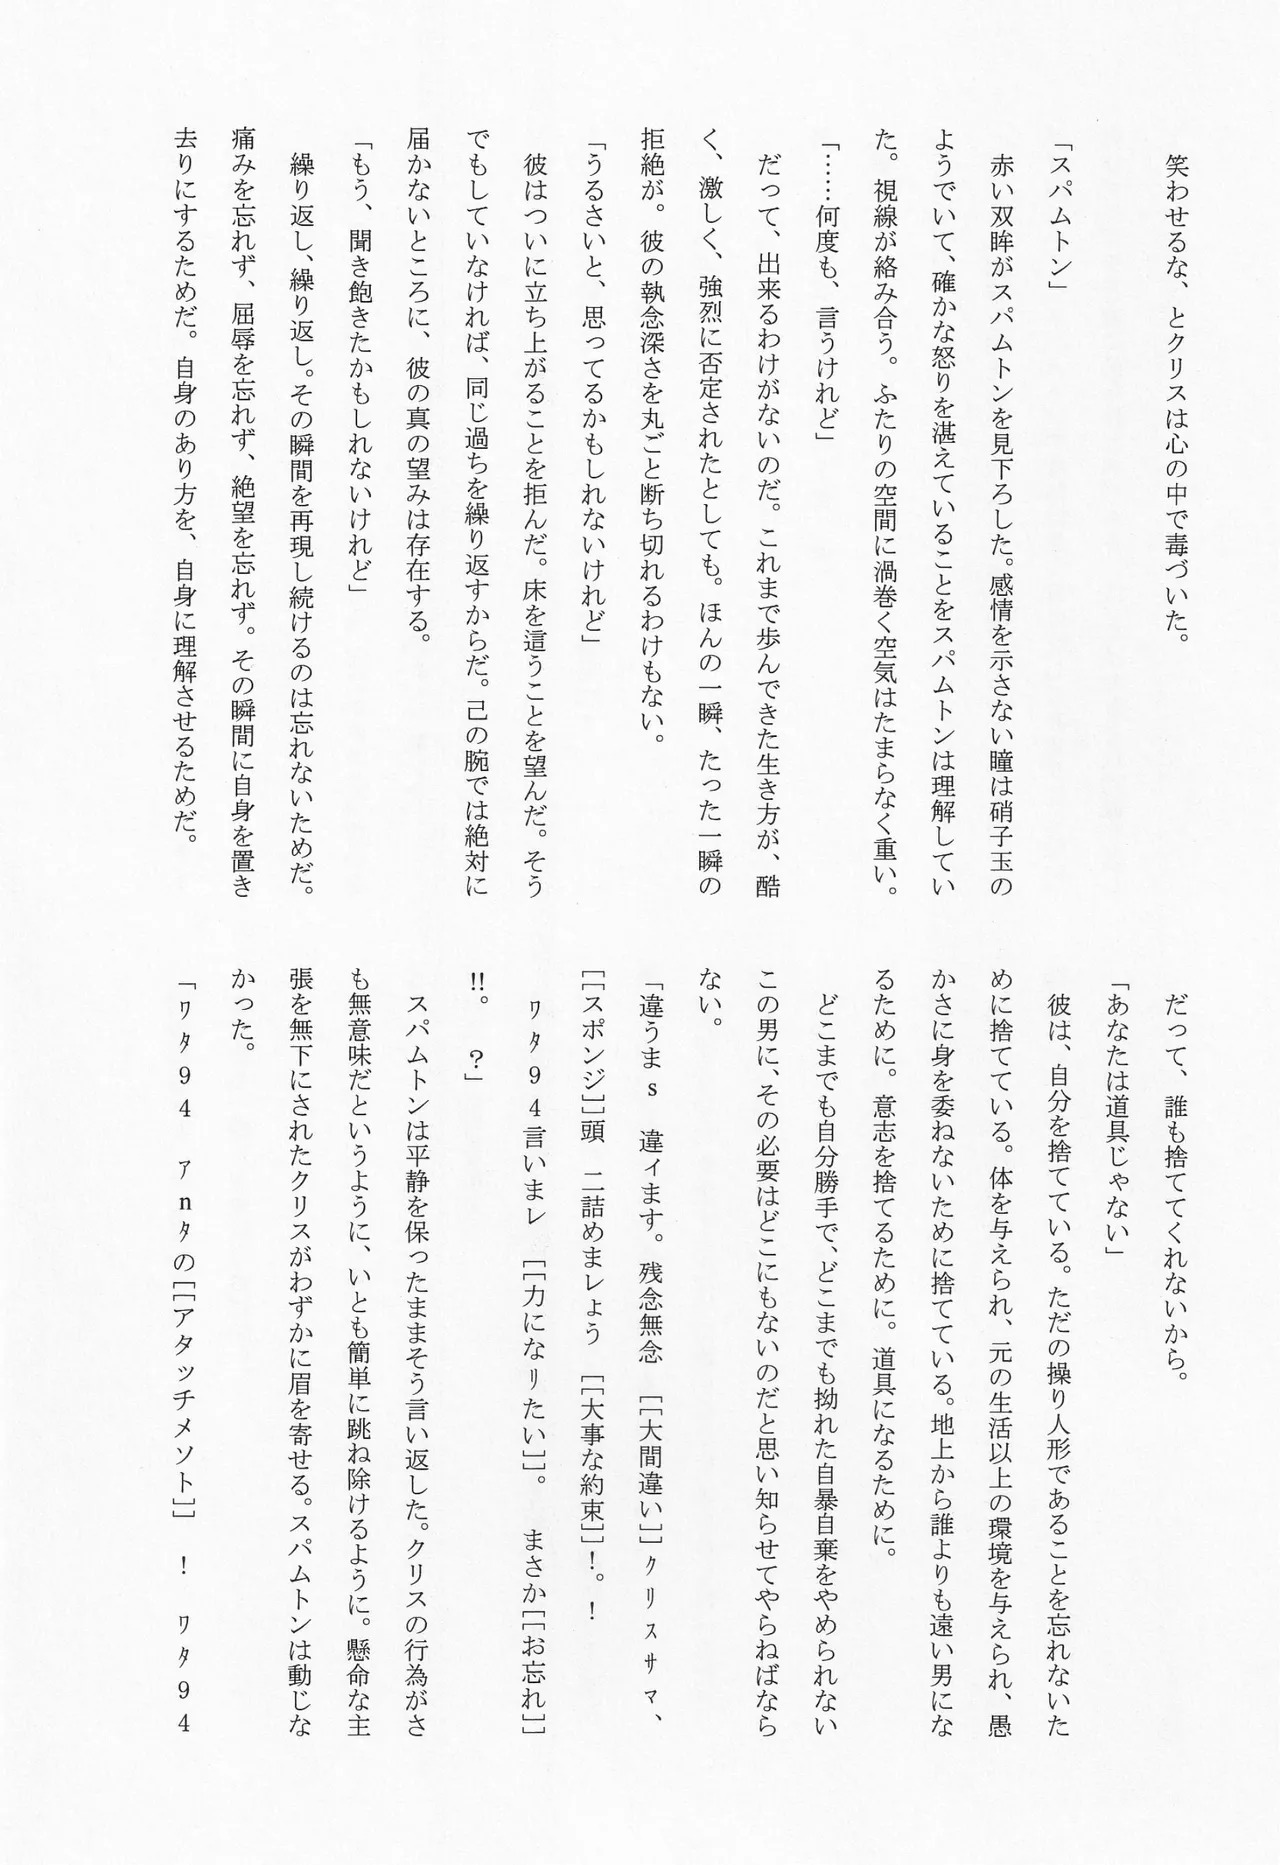 笑わせるな、とクリスは心の中で毒づいた。
「スパムトン」
赤い双眸がスパムトンを見下ろした。感情を示さない瞳は硝子玉の
ようでいて、確かな怒りを湛えていることをスパムトンは理解してい
た。視線が絡み合う。ふたりの空間に渦巻く空気はたまらなく重い。
「……何度も、言うけれど」
だって、出来るわけがないのだ。これまで歩んできた生き方が、酷
く、激しく、強烈に否定されたとしても。ほんの一瞬、たった一瞬の
拒絶が。彼の執念深さを丸ごと断ち切れるわけもない。
「うるさいと、思ってるかもしれないけれど」
彼はついに立ち上がることを拒んだ。床を這うことを望んだ。そう
でもしていなければ、同じ過ちを繰り返すからだ。己の腕では絶対に
届かないところに、彼の真の望みは存在する。
「もう、聞き飽きたかもしれないけれど」
繰り返し、繰り返し。その瞬間を再現し続けるのは忘れないためだ。
痛みを忘れず、屈辱を忘れず、絶望を忘れず。その瞬間に自身を置き
去りにするためだ。自身のあり方を、自身に理解させるためだ。
だって、誰も捨ててくれないから。
「あなたは道具じゃない」
彼は、自分を捨てている。ただの操り人形であることを忘れないた
めに捨てている。体を与えられ、元の生活以上の環境を与えられ、愚
かさに身を委ねないために捨てている。地上から誰よりも遠い男にな
るために。意志を捨てるために。道具になるために。
どこまでも自分勝手で、どこまでも拗れた自暴自棄をやめられない
この男に、その必要はどこにもないのだと思い知らせてやらねばなら
ない。
「違うまs 違ィます。残念無念 [[大間違い]]ｸﾘｽサマ、
[[スポンジ]]頭 二詰めまレょう [[大事な約束]]!。!
ﾜﾀ94言いまレ [[力になﾘたい]]。 まさか[[お忘れ]]
!!。 ?」
スパムトンは平静を保ったままそう言い返した。クリスの行為がさ
も無意味だというように、いとも簡単に跳ね除けるように。懸命な主
張を無下にされたクリスがわずかに眉を寄せる。スパムトンは動じな
かった。
「ﾜﾀ94 ｱnﾀの[[アタッチメソト]] ! ﾜﾀ94